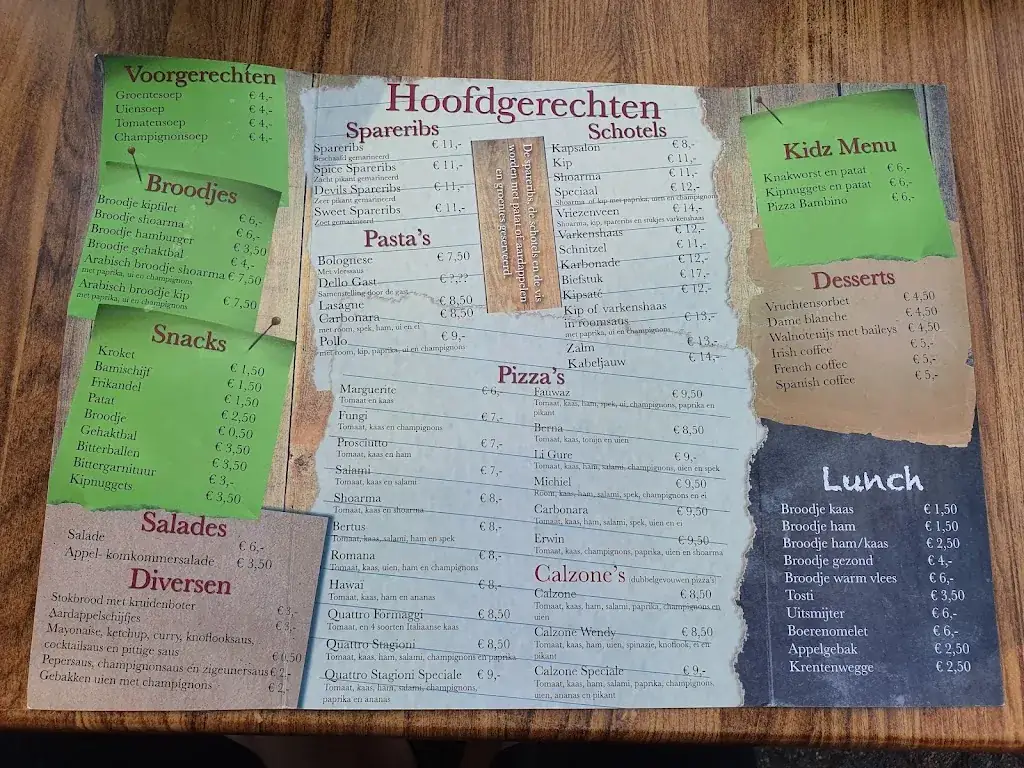 Voorgerechten
Groentesoep € 4,-
Uiensoep € 4,-
Tomatensoep € 4,-
Champignonsoep € 4,-
Broodjes
Broodje kipfilet € 6,-
Broodje shoarma € 6,-
Broodje hamburger € 3,50
Broodje gehaktbal € 4,-
Arabisch broodje shoarma € 7,50
met paprika, ui en champignons
Arabisch broodje kip € 7,50
met paprika, ui en champignons
Snacks
Kroket € 1,50
Bamischijf € 1,50
Frikandel € 1,50
Patat € 2,50
Broodje € 0,50
Gehaktbal € 3,50
Bitterballen € 3,50
Bittergarnituur € 3,-
Kipnuggets € 3,50
Salades
Salade € 6,-
Appel- komkommersalade € 3,50
Diversen
Stokbrood met kruidenboter € 3,-
Aardappelschijfjes € 3,-
Mayonaise, ketchup, curry, knoflooksaus,
cocktailsaus en pittige saus € 0,50
Pepersaus, champignonsaus en zigeunersaus € 2,-
Gebakken uien met champignons € 2,-
Hoofdgerechten
Spareribs
Spareribs € 11,-
Beschaafd gemarineerd
Spice Spareribs € 11,-
Zacht pikant gemarineerd
Devils Spareribs € 11,-
Zeer pikant gemarineerd
Sweet Spareribs € 11,-
Zoet gemarineerd
Pasta's
Bolognese € 7,50
Met vleessaus
Dello Gast € ?,??
Samenstelling door de gast
Lasagne € 8,50
Carbonara € 8,50
met room, spek, ham, ui en ei
Pollo € 9,-
met room, kip, paprika, ui en champignons
De spareribs, de schotels en de vis
worden met patat of aardappelen
en groentes geserveerd.
Schotels
Kapsalon € 8,-
Kip € 11,-
Shoarma € 11,-
Speciaal € 12,-
Shoarma of kip met paprika, uien en champignons
Vriezenveen € 14,-
Shoarma, kip, spareribs en stukjes varkenshaas
Varkenshaas € 12,-
Schnitzel € 11,-
Karbonade € 12,-
Biefstuk € 17,-
Kipsaté € 12,-
Kip of varkenshaas
in roomsaus € 13,-
met paprika, ui en champignons
Zalm € 13,-
Kabeljauw € 14,-
Pizza's
Marguerite € 6,-
Tomaat en kaas
Fungi € 7,-
Tomaat, kaas en champignons
Prosciutto € 7,-
Tomaat, kaas en ham
Salami € 7,-
Tomaat, kaas en salami
Shoarma € 8,-
Tomaat, kaas en shoarma
Bertus € 8,-
Tomaat, kaas, salami, ham en spek
Romana € 8,-
Tomaat, kaas, uien, ham en champignons
Hawai € 8,-
Tomaat, kaas, ham en ananas
Quattro Formaggi € 8,50
Tomaat, en 4 soorten Italiaanse kaas
Quattro Stagioni € 8,50
Tomaat, kaas, ham, salami, champignons en paprika
Quattro Stagioni Speciale € 9,-
Tomaat, kaas, ham, salami, champignons,
paprika en ananas
Fauwaz € 9,50
Tomaat, kaas, ham, spek, ui, champignons, paprika en
pikant
Berna € 8,50
Tomaat, kaas, tonijn en uien
Li Gure € 9,-
Tomaat, kaas, ham, salami, champignons, uien en spek
Michiel € 9,50
Room, kaas, ham, salami, spek, champignons en ei
Carbonara € 9,50
Tomaat, kaas, ham, salami, spek, uien en ei
Erwin € 9,50
Tomaat, kaas, champignons, paprika, uien en shoarma
Calzone's (dubbelgevouwen pizza's)
Calzone € 8,50
Tomaat, kaas, ham, salami, paprika, champignons en
uien
Calzone Wendy € 8,50
Tomaat, kaas, ham, uien, spinazie, knoflook, ei en
pikant
Calzone Speciale € 9,-
Tomaat, kaas, ham, salami, paprika, champignons,
uien, ananas en pikant
Kidz Menu
Knakworst en patat € 6,-
Kipnuggets en patat € 6,-
Pizza Bambino € 6,-
Desserts
Vruchtensorbet € 4,50
Dame blanche € 4,50
Walnotenijs met baileys € 4,50
Irish coffee € 5,-
French coffee € 5,-
Spanish coffee € 5,-
Lunch
Broodje kaas € 1,50
Broodje ham € 1,50
Broodje ham/kaas € 2,50
Broodje gezond € 4,-
Broodje warm vlees € 6,-
Tosti € 3,50
Uitsmijter € 6,-
Boerenomelet € 6,-
Appelgebak € 2,50
Krentenwegge € 2,50